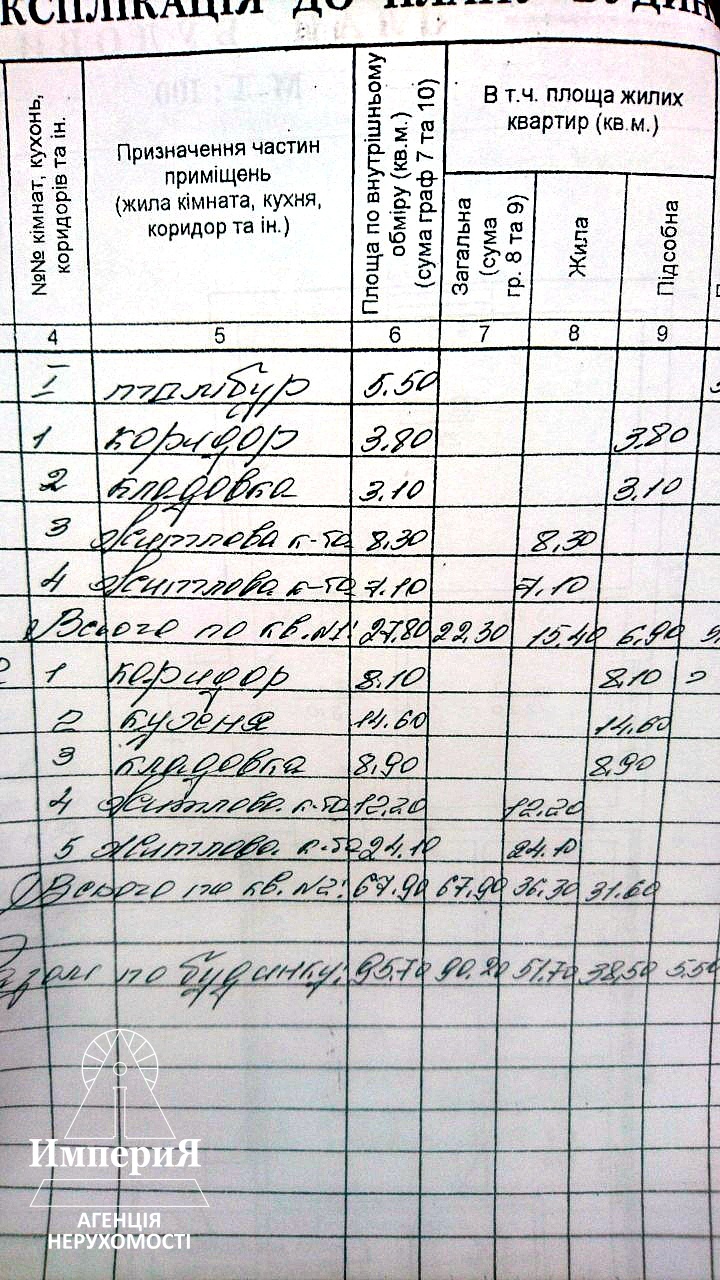 КСПЛІКАЦІЯ ДО ПЛАНУ БУДИН
№№ кімнат, кухонь, коридорів та ін.
Призначення частин приміщень (жила кімната, кухня, коридор та ін.)
Площа по внутрішньому обміру (кв.м.) (сума граф 7 та 10)
В т.ч. площа жилих квартир (кв.м.)
Загальна (сума гр. 8 та 9)
Жила
Підсобна
4 5 6 7 8 9
I тамбур 5.50
1 коридор 3.80 3.80
2 кладовка 3.10 3.10
3 Житлова к-та 8.30 8.30
4 Житлова к-та 7.10 7.10
Всього по кв. №1: 27.80 22.30 15.40 6.90
2 1 коридор 8.10 8.10
2 кухня 14.60 14.60
3 кладовка 8.90 8.90
4 Житлова к-та 12.20 12.20
5 Житлова к-та 24.10 24.10
Всього по кв. №2: 67.90 67.90 36.30 31.60
Разом по будинку: 95.70 90.20 51.70 38.50 5.50
ИмпериЯ
АГЕНЦІЯ
НЕРУХОМОСТІ